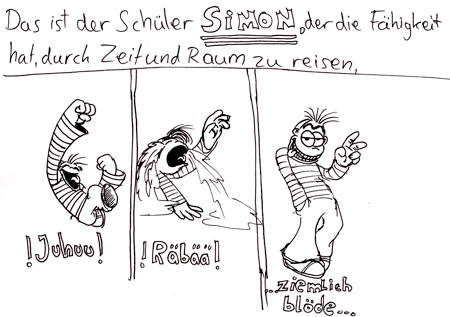 Das ist der Schüler SiMON, der die Fähigkeit
hat, durch Zeit und Raum zu reisen,
! Juhuu !
! Räbää !
...ziemlich
blöde...